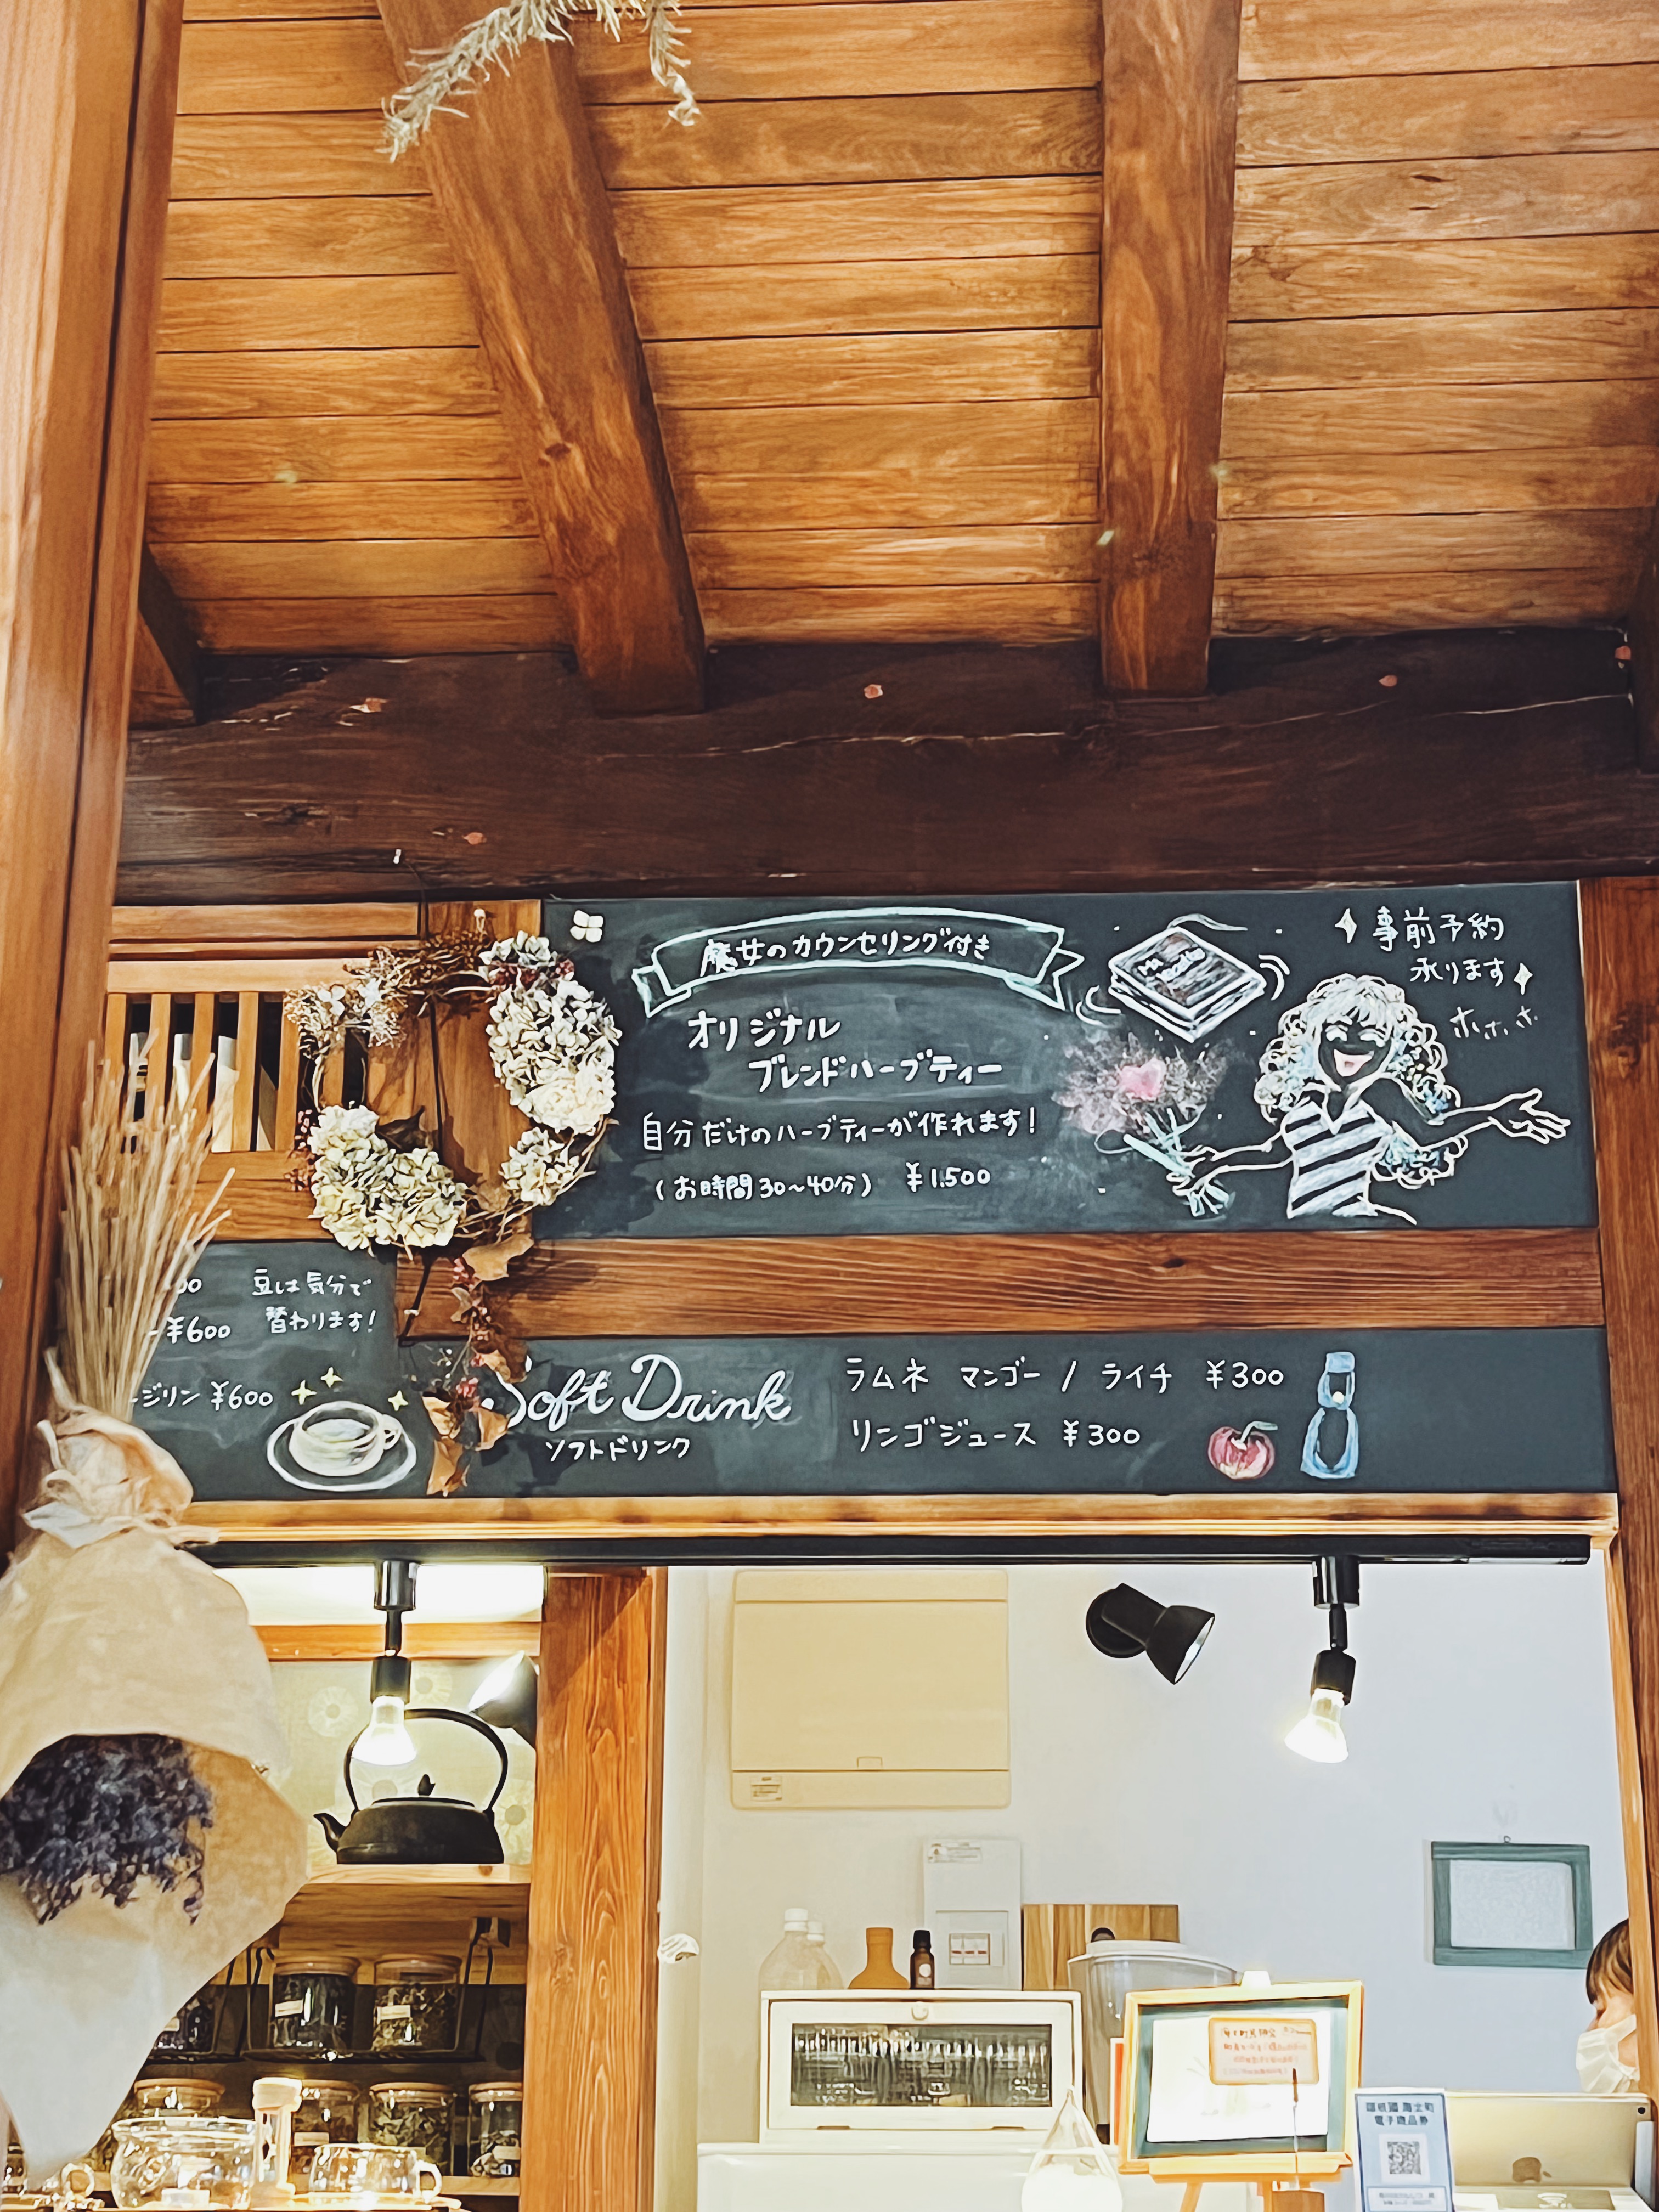 魔女のカウンセリング付き
オリジナル
ブレンドハーブティー
自分だけのハーブティーが作れます!
(お時間30~40分) ¥1,500
事前予約
承ります
ホホホ
豆は気分で
替わります!
¥600
ジリン ¥600
Soft Drink
ソフトドリンク
ラムネ マンゴー / ライチ ¥300
リンゴジュース ¥300
隠岐國 海士町
電子商品券